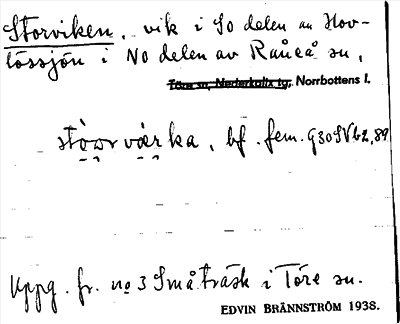 Storviken, vik i SO delen av Hov-
lössjön i NO delen av Råneå sn,
Töre sn, Nederkalix tg, Norrbottens l.
stòwrvàrka, bf. fem. G30SVb2,89
Uppg. fr. no 3 Småträsk i Töre sn.
EDVIN BRÄNNSTRÖM 1938.